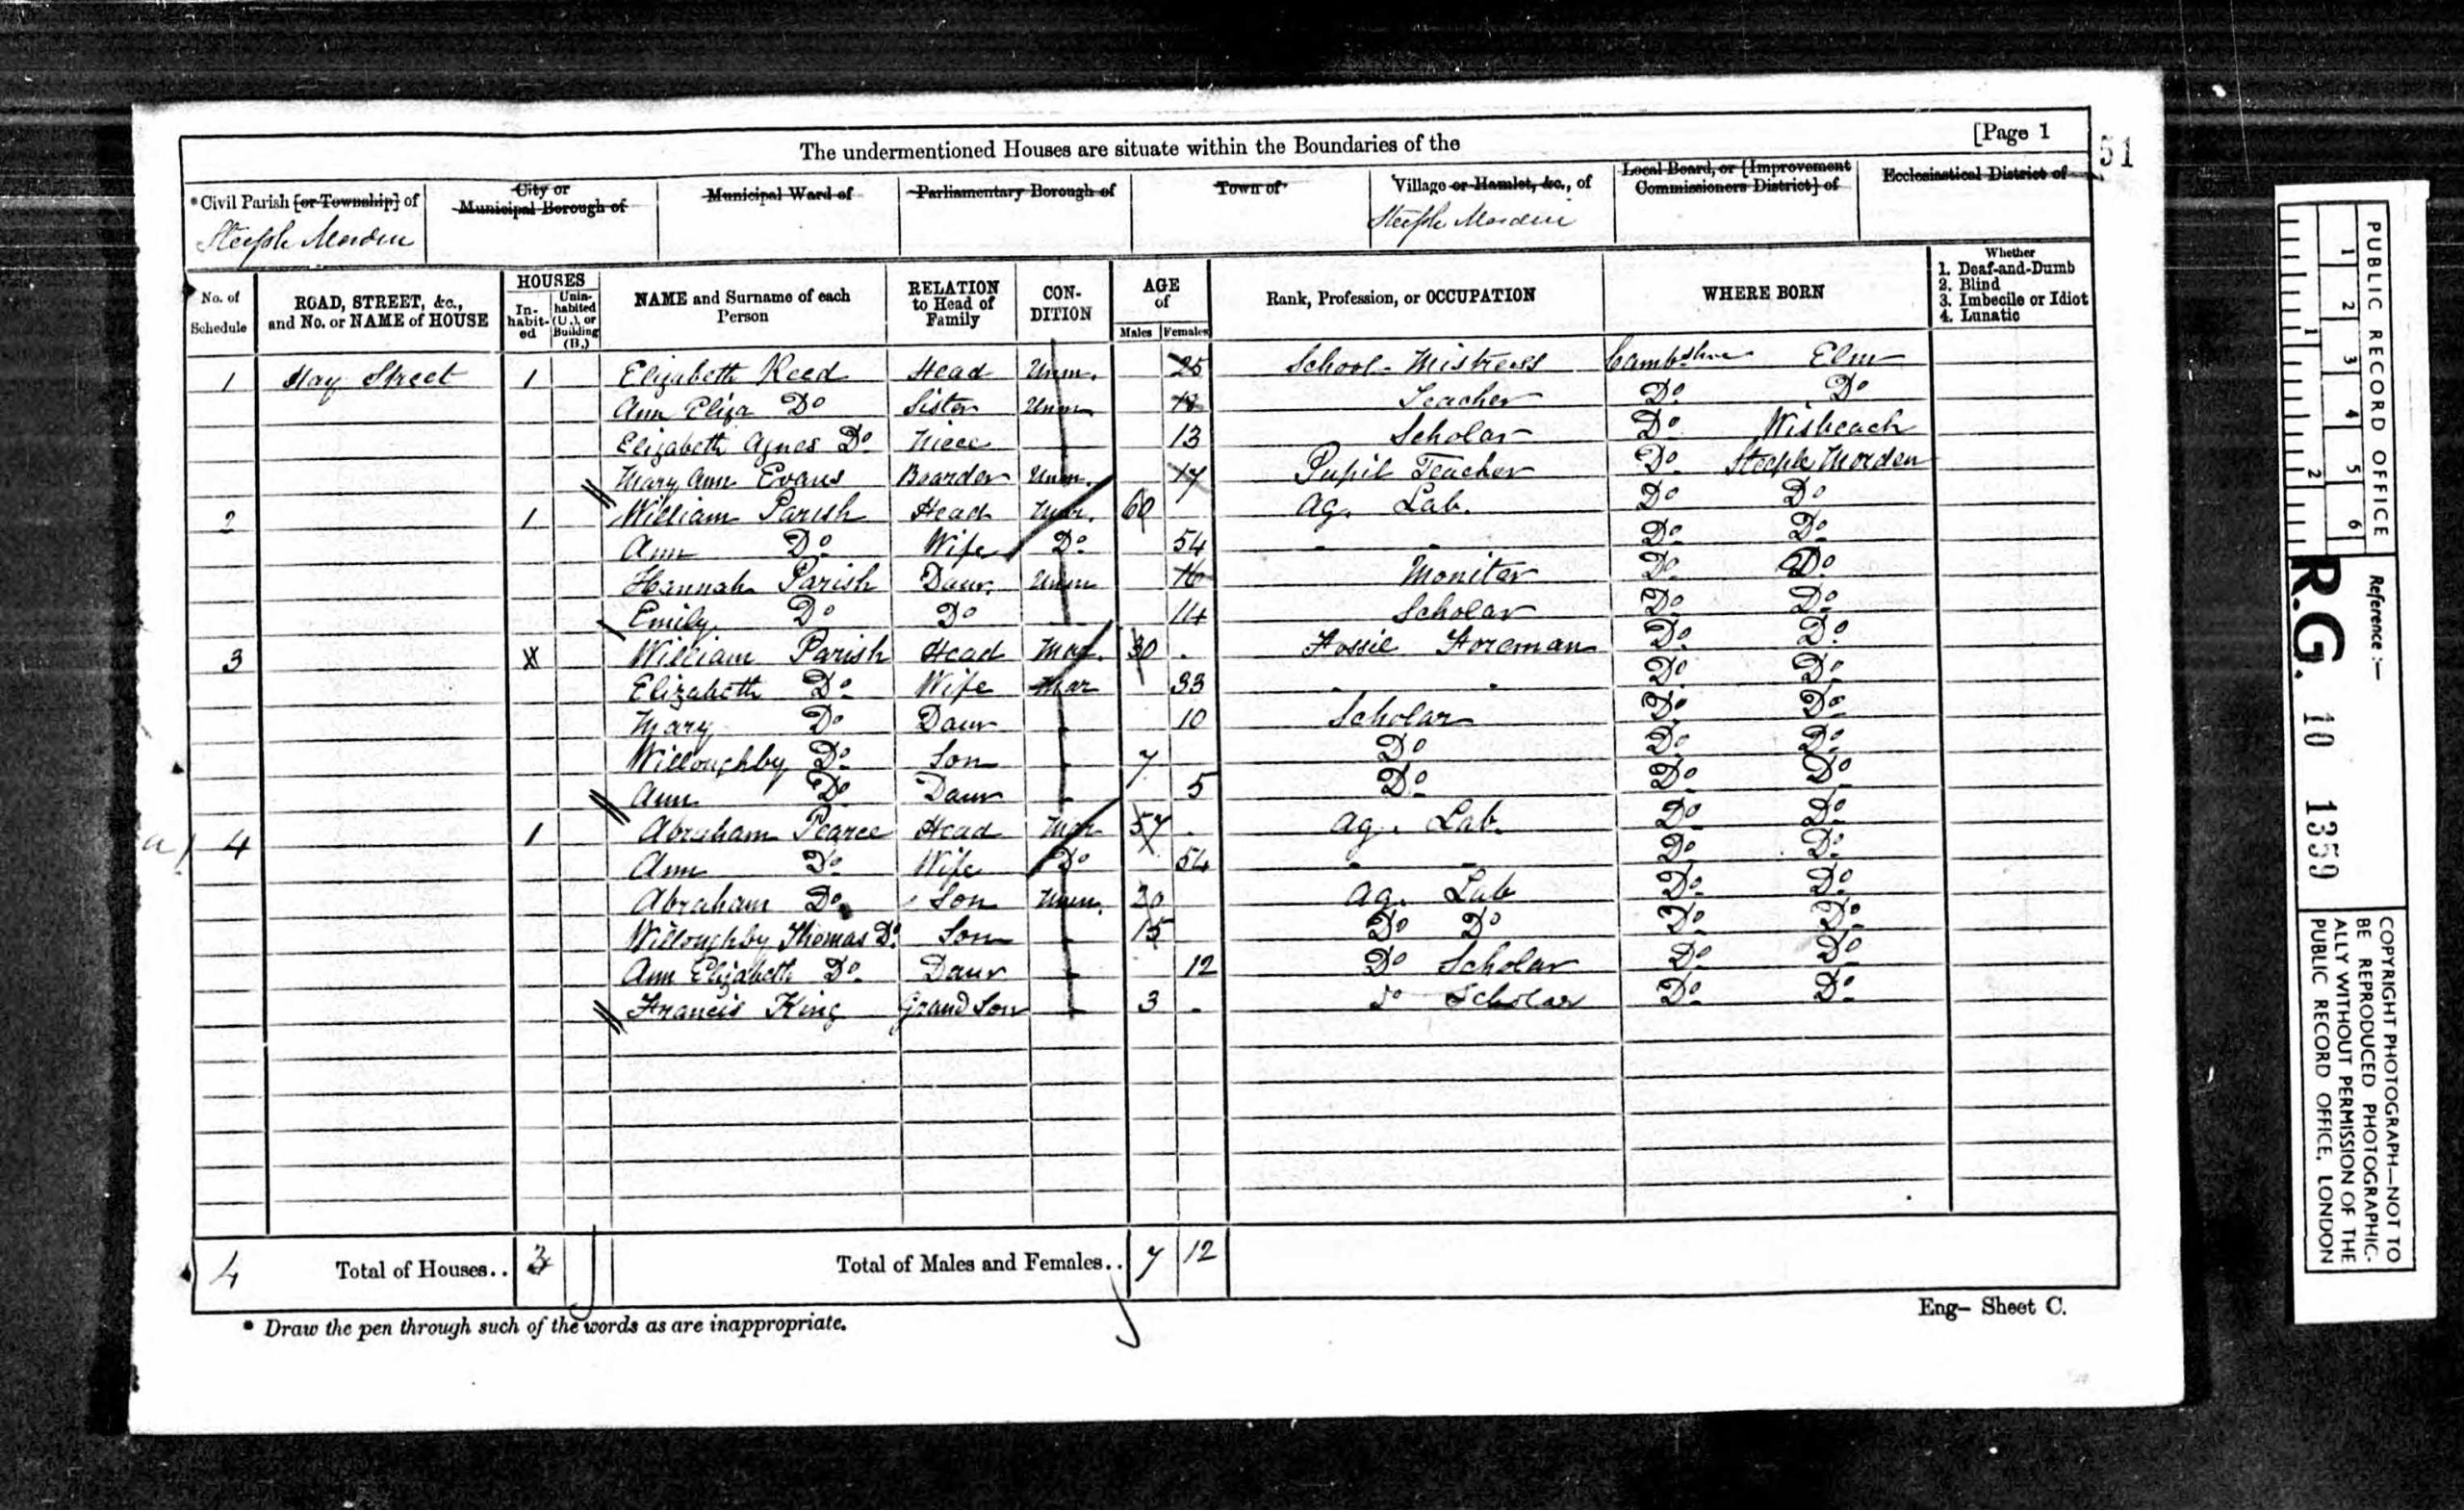 The undermentioned Houses are situate within the Boundaries of the
[Page 1
51
* Civil Parish [or Township] of
City or Municipal Borough of
Municipal Ward of
Parliamentary Borough of
Town of
Village or Hamlet, &c., of
Local Board, or [Improvement Commissioners District] of
Ecclesiastical District of
Steeple Morden
Steeple Morden
No. of Schedule
ROAD, STREET, &c., and No. or NAME of HOUSE
HOUSES
In-habit-ed
Unin-habited (U.), or Building (B.)
NAME and Surname of each Person
RELATION to Head of Family
CON-DITION
AGE of
Males Females
Rank, Profession, or OCCUPATION
WHERE BORN
Whether
1. Deaf-and-Dumb
2. Blind
3. Imbecile or Idiot
4. Lunatic
1 Hay Street 1 Elizabeth Reed Head Unm. 25 School-Mistress Cambshire Elm
Ann Eliza Do Sister Unm. 18 Teacher Do Do
Elizabeth Agnes Do Niece 13 Scholar Do Wisbeach
Mary Ann Evans Boarder Unm. 17 Pupil Teacher Do Steeple Morden
2 1 William Parish Head Mar. 60 Ag. Lab. Do Do
Ann Do Wife Do 54 - - Do Do
Hannah Parish Daur. Unm 16 Moniter Do Do
Emily Do Do 14 Scholar Do Do
3 William Parish Head Mar. 30 Fossil Foreman Do Do
Elizabeth Do Wife Mar 33 - - Do Do
Mary Do Daur 10 Scholar Do Do
Willoughby Do Son 7 Do Do Do
Ann Do Daur 5 Do Do Do
4 1 Abraham Pearce Head Mar 57 Ag. Lab. Do Do
Ann Do Wife Do 54 - - Do Do
Abraham Do Son Unm. 20 Ag. Lab Do Do
Willoughby Thomas Do Son 15 Do Do Do Do
Ann Elizabeth Do Daur 12 Do Scholar Do Do
Francis King Grand Son 3 Do Scholar Do Do
4 Total of Houses.. 3 Total of Males and Females.. 7 12
* Draw the pen through such of the words as are inappropriate.
Eng- Sheet C.
PUBLIC RECORD OFFICE
1 2 3 4 5 6
1 2
Reference :-
R.G. 10 1359
COPYRIGHT PHOTOGRAPH—NOT TO
BE REPRODUCED PHOTOGRAPHIC-
ALLY WITHOUT PERMISSION OF THE
PUBLIC RECORD OFFICE, LONDON